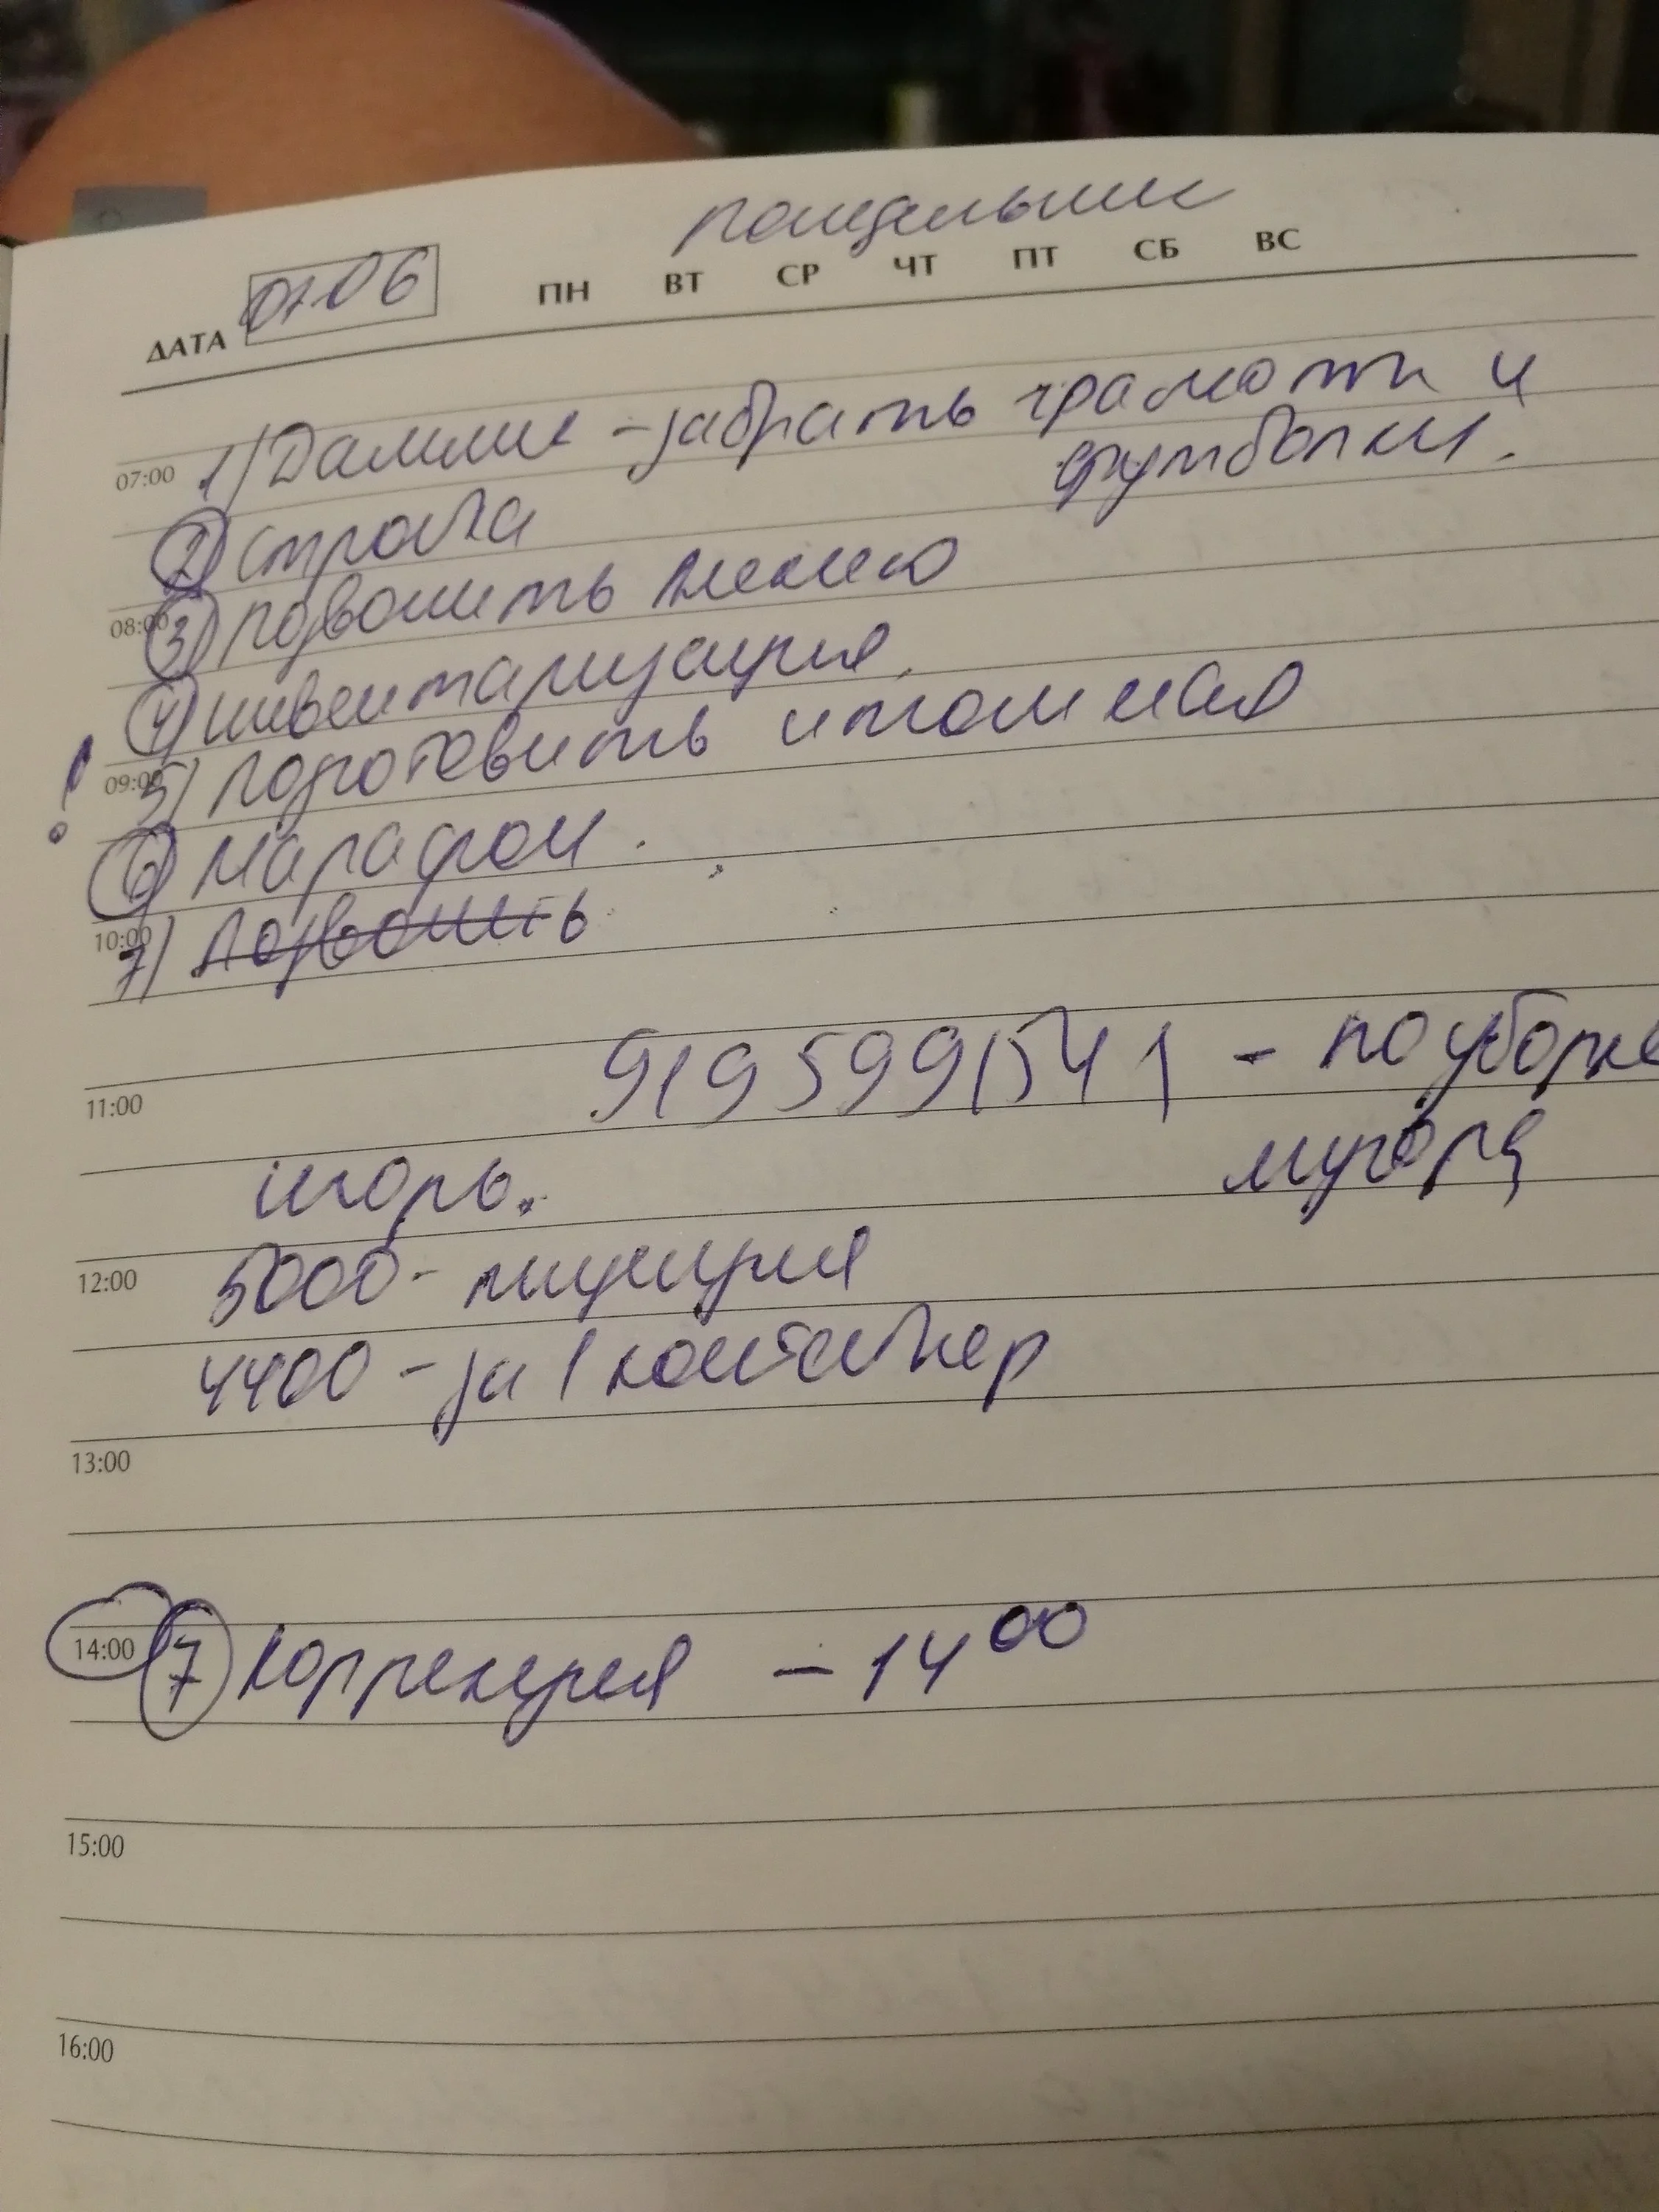 понедельник
ДАТА 07.06 ПН ВТ СР ЧТ ПТ СБ ВС
07:00 1) - забрать грамоты и
футболки.
2) строка
08:00 3) позвонить
4) инвентаризация.
! 09:00 5) подготовить итоги мая
6) Марафон.
10:00 7) Позвонить
9195991541 - по уборке
11:00
мусора
игорь.
12:00 5000 - лицензия
4400 - за 1 контейнер
13:00
14:00 7 Коррекция - 14 00
15:00
16:00